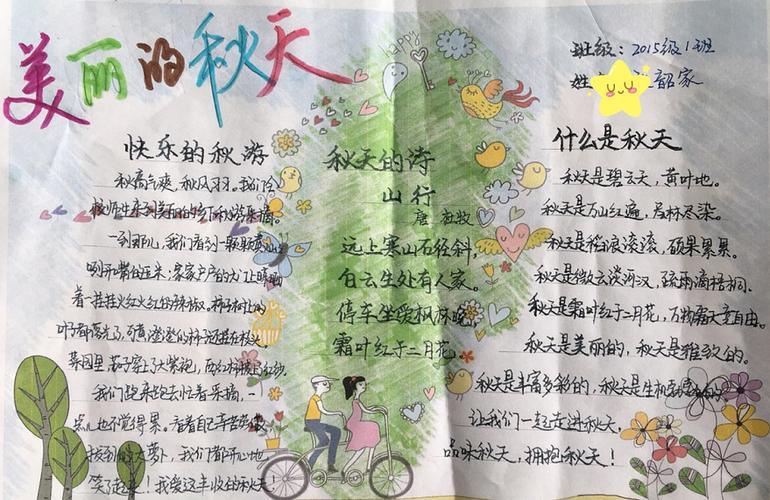 美丽的秋天
班级：2015级1班
姓 韶家
快乐的秋游
秋高气爽，秋风习习。我们
校师生来到美丽的 秋游采摘。
一到那儿，我们看到一颗颗
咧开嘴 ，家家户户的大门上晒
着一挂挂火红火红的辣椒。柿子树上的
叶子都落光了，可黄澄澄的柿子还挂在枝头
菜园里，茄子穿上了大紫袍，西红柿披上红纱。
我们跑来跑去忙着采摘，一
点儿也不觉得累。看着自己辛苦
拔到的大萝卜，我们都开心地
笑了起来！我爱这丰收的秋天！
秋天的诗
山行
唐 杜牧
远上寒山石径斜，
白云生处有人家。
停车坐爱枫林晚，
霜叶红于二月花。
什么是秋天
秋天是碧云天，黄叶地。
秋天是万山红遍，层林尽染。
秋天是稻浪滚滚，硕果累累。
秋天是微云淡河汉，疏雨滴梧桐。
秋天是霜叶红于二月花，万类霜天竞自由。
秋天是美丽的，秋天是雅致的。
秋天是丰富多彩的，秋天是生机
让我们一起走进秋天，
品味秋天，拥抱秋天！